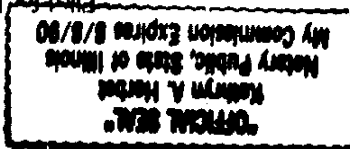 "OFFICIAL SEAL"
Kathryn A. Herbst
Notary Public, State of Illinois
My Commission Expires 8/8/90